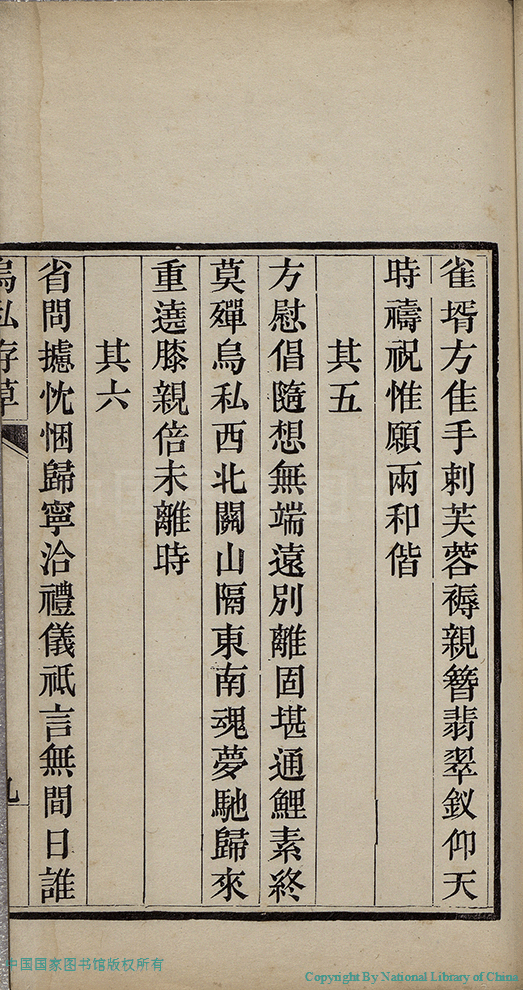 雀壻方隹手刺芙蓉褥親簪翡翠釵仰天
時禱祝惟願兩和偕
其五
方慰倡隨想無端遠別離固堪通鯉素終
莫殫烏私西北關山隔東南魂夢馳歸來
重遶膝親倍未離時
其六
省問攄忱悃歸寧洽禮儀祗言無間日誰
烏私存草
九
中国国家图书馆版权所有
Copyright By National Library of China